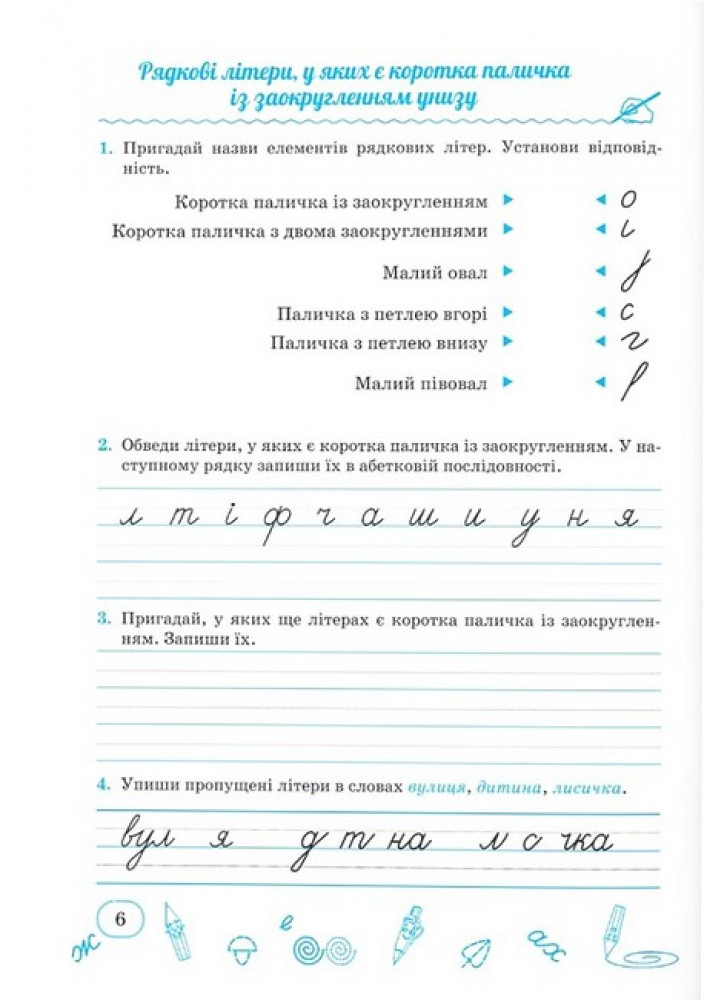 Рядкові літери, у яких є коротка паличка
із заокругленням унизу
1. Пригадай назви елементів рядкових літер. Установи відповід-
ність.
Коротка паличка із заокругленням
Коротка паличка з двома заокругленнями
Малий овал
Паличка з петлею вгорі
Паличка з петлею внизу
Малий півовал
2. Обведи літери, у яких є коротка паличка із заокругленням. У на-
ступному рядку запиши їх в абетковій послідовності.
л т і ф ч а ш и у н я
3. Пригадай, у яких ще літерах є коротка паличка із заокруглен-
ням. Запиши їх.
4. Упиши пропущені літери в словах вулиця, дитина, лисичка.
вул я д т на л с чка
6
ж е ах